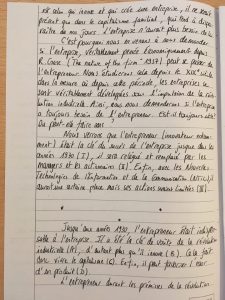 est celui qui innove et qui crée une entreprise, il est donc
présent que dans le capitalisme familial, qui tend à dispa-
raître de nos jours. L'entreprise n'aurait plus besoin de lui.
C'est pourquoi nous en venons à nous demander
si l'entreprise, véritablement pensée économiquement depuis
R. Coase (The nature of the firm, 1937) peut se passer de
l'entrepreneur. Nous étudierons cela depuis le XIXe siècle
dans la mesure où depuis cette période, les entreprises se
sont véritablement développées sous l'impulsion de la révo-
lution industrielle. Ainsi, nous nous demanderons si l'entreprise
a toujours besoin de l'entrepreneur. Est-il toujours utile?
Ou peut-elle faire sans?
Nous verrons que l'entrepreneur (innovateur notam-
ment) était la clé du succès de l'entreprise jusque dans les
années 1930 (I), il sera relégué et remplacé par les
managers et les actionnaires (II). Enfin, avec les Nouvelles
Technologies de l'Information et de la Communication (NTIC), il
aurait une certaine place mais ses actions moins limitées (III).
Jusqu'aux années 1930, l'entrepreneur était indispen-
sable à l'entreprise. Il a été la clé de voûte de la révolution
industrielle (A), d'autant plus qu'il innove (B). Ça a fait
donc vivre le capitalisme (C). Enfin, il peut prolonger l'essor
d'un produit (D).
L'entrepreneur durant les prémices de la révolution